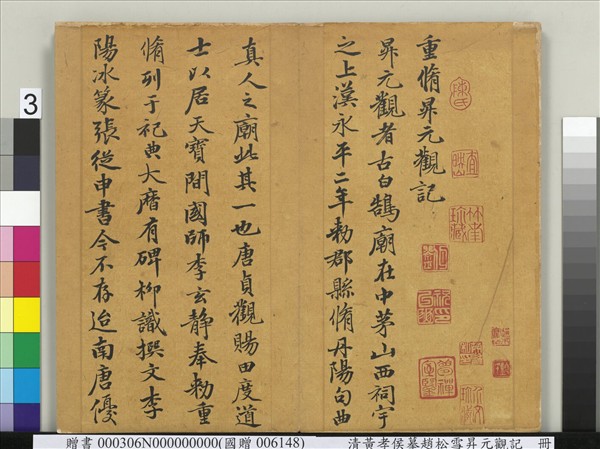 重脩昇元觀記
昇元觀者古白鵠廟在中茅山西祠宇
之上漢永平二年勅郡縣脩丹陽句曲
真人之廟此其一也唐貞觀賜田度道
士以居天寶間國師李玄静奉勅重
脩列于祀典大曆有碑柳識撰文李
陽冰篆張從申書今不存迨南唐優
3
贈書 000306N000000000(國贈 006148)
清黃孝侯摹趙松雪昇元觀記 冊